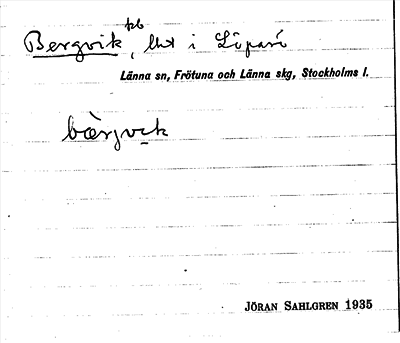 pb
Bergvik, lht i Löparö
Länna sn, Frötuna och Länna skg, Stockholms l.
bærgvik
JÖRAN SAHLGREN 1935